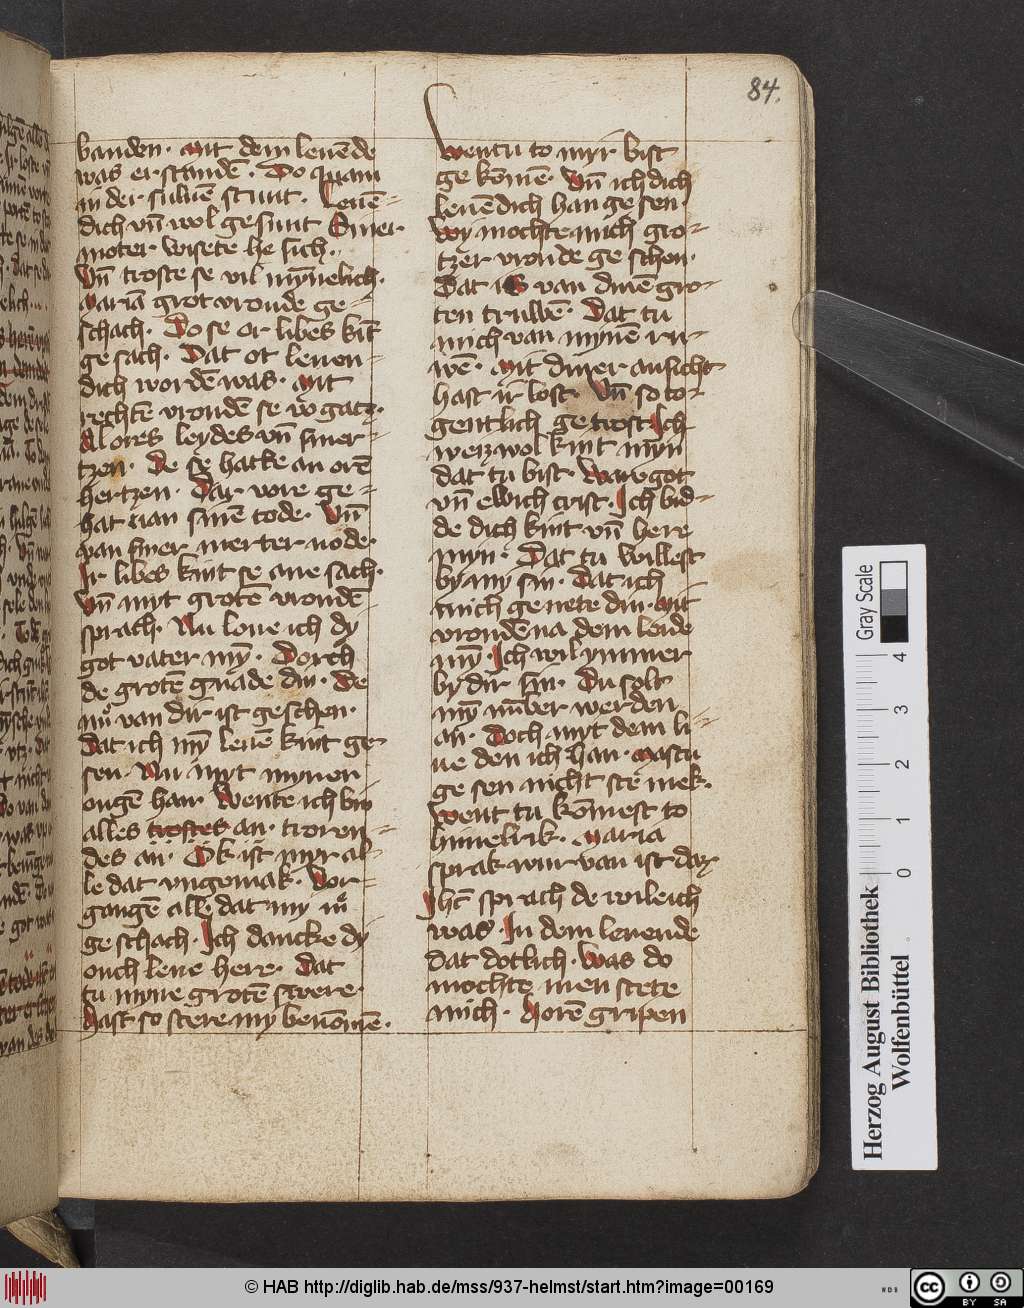 84.
banden. Mit dem leuēde
was er standē. Do quam
in der suluen stunt. Leuē=
dich vn̄ wol gesunt Siner
moter wisete he sich.
Vn̄ troste se vil mȳnelich.
Mariā grot vroude ge=
schach. Do se or libes kīt
ge sach. Dat ot leuen=
dich wordē was. Mit
rechtē vroudē se v̄gatz.
Al ores leydes vn̄ smer=
tzen. De se hatte an orē
hertzen. Dar vore ge=
hat van sinē tode. Vn̄
van siner merter node.
Ir libes kint se ane sach.
Vn̄ myt grotē vroudē
sprach. Nu loue ich dy
got vater mȳ. Dorch
de grotē gnade din. De
nů van dir ist geschen.
Dat ich mȳ leuē kint ge
sen. Nu myt mynen
ougē han. Wente ich bin
alles trostes an. troren=
des an. Ok ist myr al=
le dat vngemak. Vor=
gangē all. dat my ů
ge schach. Ich dancke dy
ouch leue here. Dat
tu myne grotē swere.
Hast so stere my benomē.
wentu to myr bist
ge komē. Vn̄ ich dich
leuēdich han ge sen.
Wy mochte mich gro=
tzer vroude ge schen.
Dat is van dinē gro=
ten truwē. Dat tu
mich van mynē ru=
wē. Mit diner ansicht
hast ir lost. Vn̄ so to=
gentlich ge trost Ich
weiz wol kint myn
dat tu bist. Ware got
vn̄ ewich crist. Ich bid=
de dich kint vn̄ here
myn. Dat tu willest
by my sin. Dat ich
mich ge nete din. Mit
vroudē na dem leide
mȳ. Ich wil ymmer
by dir sin. Du solt
mȳ nūber werden
an. Doch myt dem li=
ue den ich han. Mastu
ge sen nicht ste mek.
Went tu komest to
himelrik. Maria
sprak wur van ist daz
Ihc̄ sprach de wile ich
was. In dem leuende
dat dotlich. Was do
mochte men stete
mich. Horē gripen
Herzog August Bibliothek
Wolfenbüttel
Gray Scale
0 1 2 3 4
© HAB http://diglib.hab.de/mss/937-helmst/start.htm?image=00169
WDB
cc BY SA